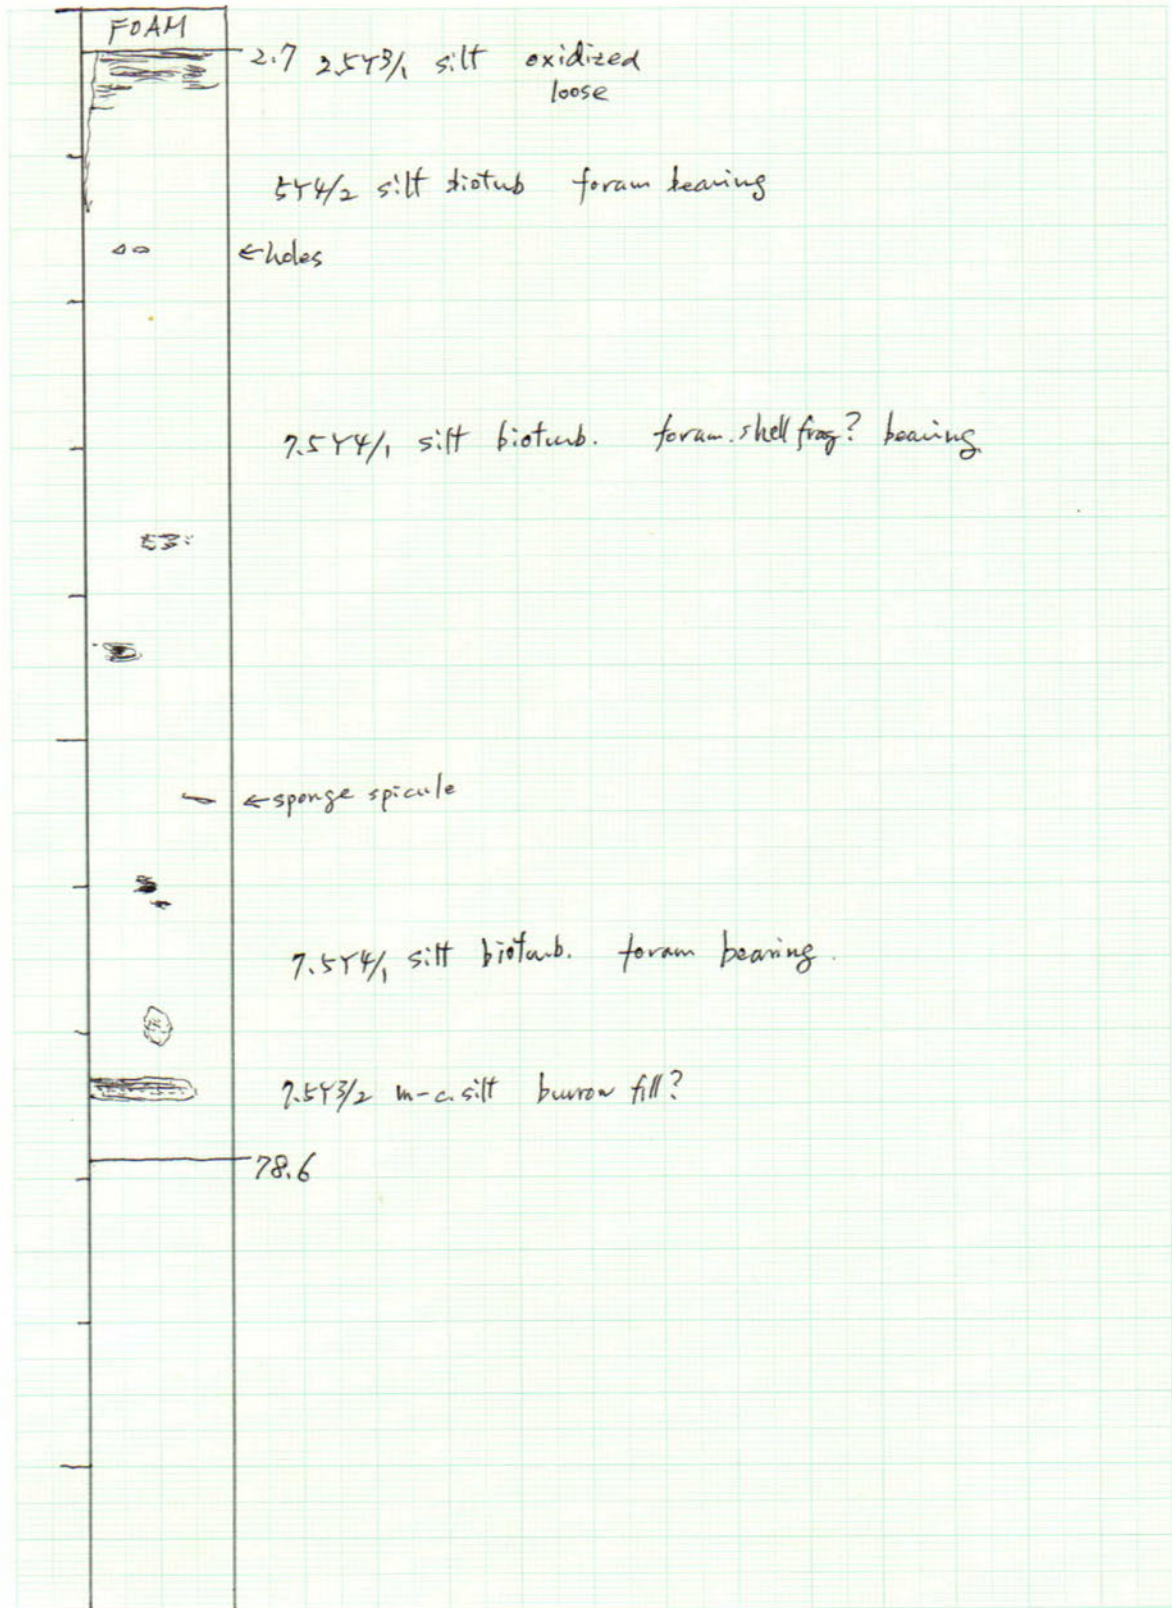 FOAM
2.7 2.5Y3/1 silt oxidized
loose
5Y4/2 silt biotub foram bearing
←holes
7.5Y4/1 silt bioturb. foram. shell frag? bearing
←sponge spicule
7.5Y4/1 silt bioturb. foram bearing.
7.5Y3/2 m-c. silt burrow fill?
78.6